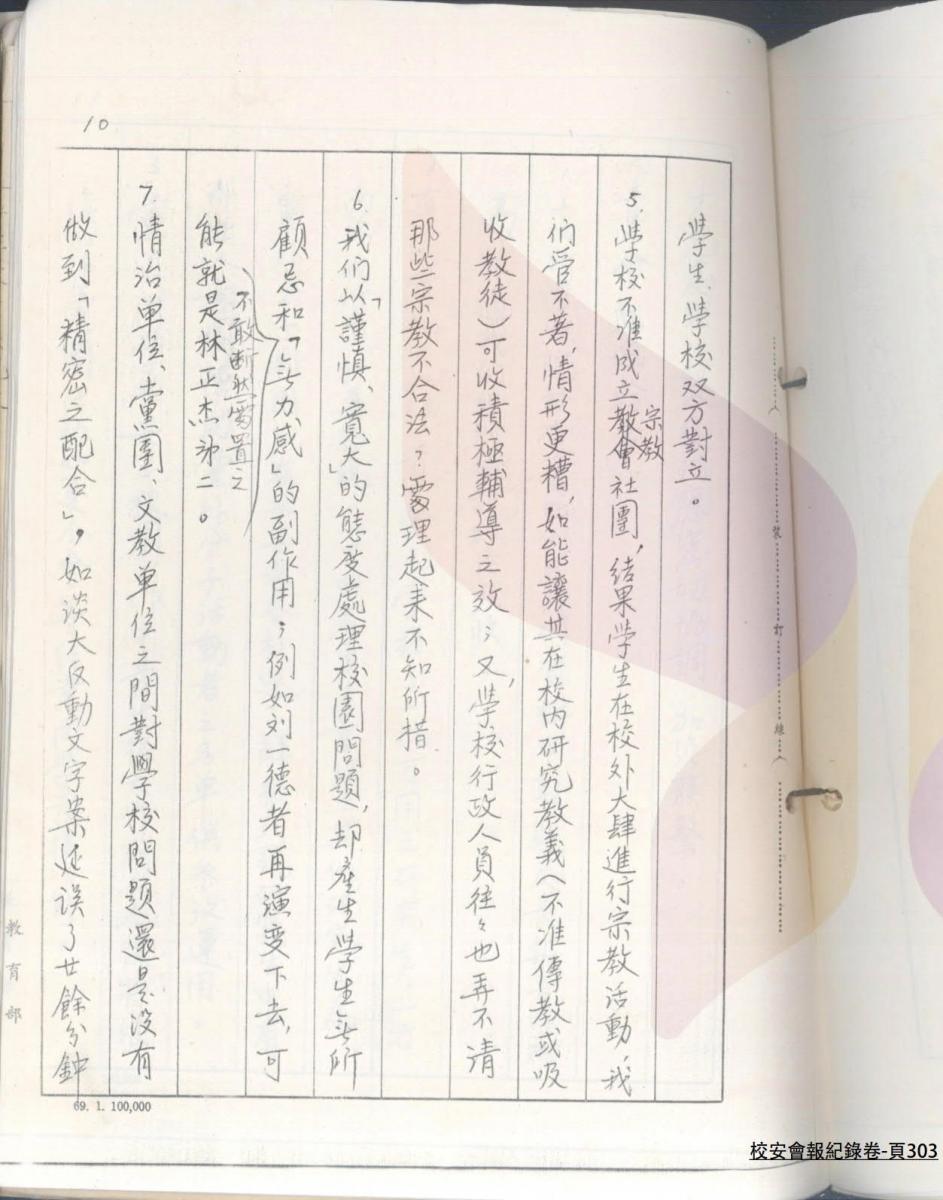 10
學生、學校双方對立。
5.學校不准成立教會宗教社團,結果学生在校外大肆進行宗教活動,我
們管不著,情形更糟,如能讓其在校内研究教義(不准傳教或吸
收教徒)可收積極輔導之效;又,學校行政人員往々也弄不清
那些宗教不合法?處理起来不知所措。
6.我们以「謹慎、寬大」的態度處理校園問題,却產生學生無所
顧忌和「無力感」的副作用;例如刘一德者再演变下去,可
不敢断然處置之
能就是林正杰第二。
7.情治单位、黨團、文教单位之間對學校問題還是没有
做到「精密之配合」,如談大反動文字案延误了廿餘分鐘
教育部
裝訂線
69. 1. 100,000
校安會報紀錄卷-頁303